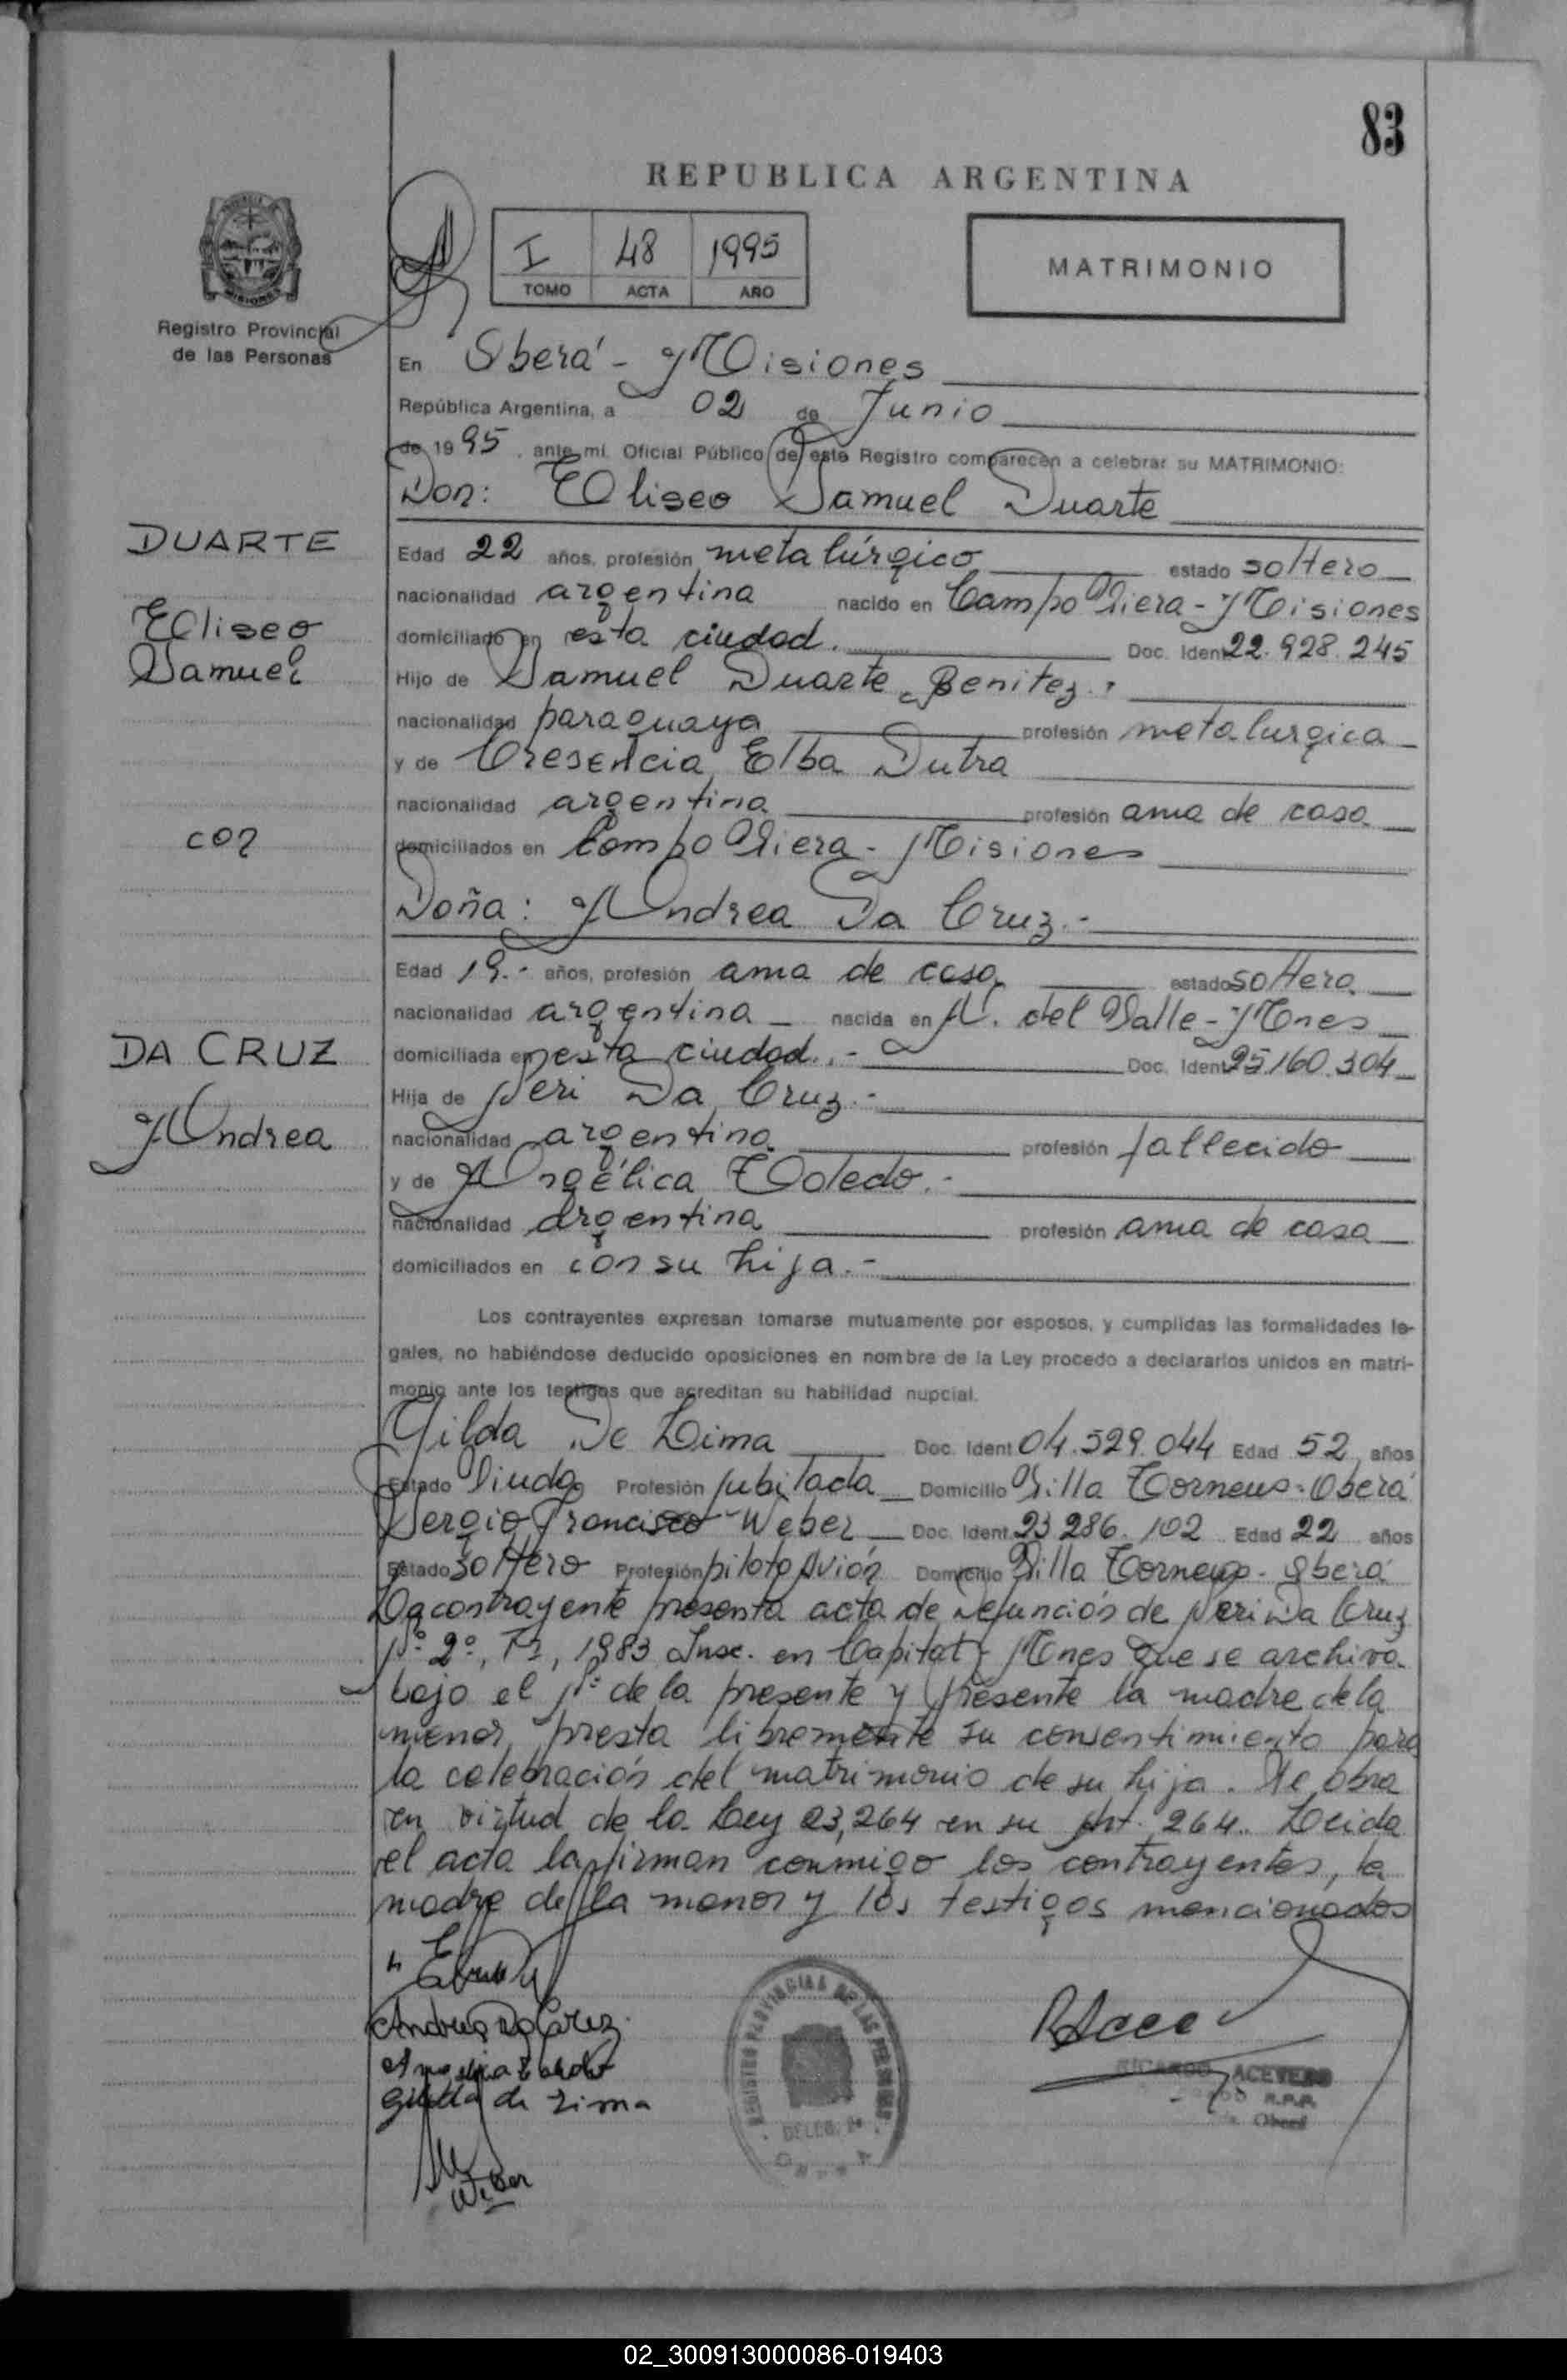 83
REPUBLICA ARGENTINA
I 48 1995
TOMO ACTA AÑO
MATRIMONIO
Registro Provincial
de las Personas
En Oberá - Misiones
República Argentina, a 02 de Junio
de 1995, ante mi. Oficial Público de este Registro comparecen a celebrar su MATRIMONIO:
Don: Eliseo Samuel Duarte
DUARTE
Eliseo
Samuel
con
DA CRUZ
Andrea
Edad 22 años, profesión metalúrgico estado soltero
nacionalidad argentina nacido en Campo Viera - Misiones
domiciliado en esta ciudad. Doc. Ident 22.928.245
Hijo de Samuel Duarte Benitez.
nacionalidad paraguaya profesión metalurgica
y de Cresencia Elba Dutra
nacionalidad argentina profesión ama de casa
domiciliados en Campo Viera - Misiones
Doña: Andrea Da Cruz.-
Edad 19.- años, profesión ama de casa estado soltera
nacionalidad argentina nacida en A. del Valle - Mnes
domiciliada en esta ciudad.- Doc. Ident 25.160.304
Hija de Neri Da Cruz.-
nacionalidad argentina profesión fallecido
y de Angélica Toledo.-
nacionalidad argentina profesión ama de casa
domiciliados en con su hija.-
Los contrayentes expresan tomarse mutuamente por esposos, y cumplidas las formalidades le-
gales, no habiéndose deducido oposiciones en nombre de la Ley procedo a declararlos unidos en matri-
monio ante los testigos que acreditan su habilidad nupcial.
Gilda De Lima Doc. Ident 04.529.044 Edad 52 años
Estado Viuda Profesión jubilada Domicilio Villa Torneus - Oberá
Sergio Francisco Weber Doc. Ident. 23 286.102 Edad 22 años
Estado soltero Profesión piloto Avión Domicilio Villa Torneus - Oberá
La contrayente presenta acta de defunción de Neri Da Cruz
Nº 2º, 1983 Insc. en Capital - Mnes que se archiva
bajo el Nº de la presente y presente la madre de la
menor, presta libremente su consentimiento para
la celebración del matrimonio de su hija. Se obra
en virtud de la Ley 23,264 en su Art. 264. Leida
el acta la firman conmigo los contrayentes, la
madre de la menor y los testigos mencionados
Andrea Da Cruz
Gilda de Lima
Weber
REGISTRO PROVINCIAL DE LAS PERSONAS
DELEG.
RICARDO ACEVEDO
R.P.P.
Oberá
02_300913000086-019403